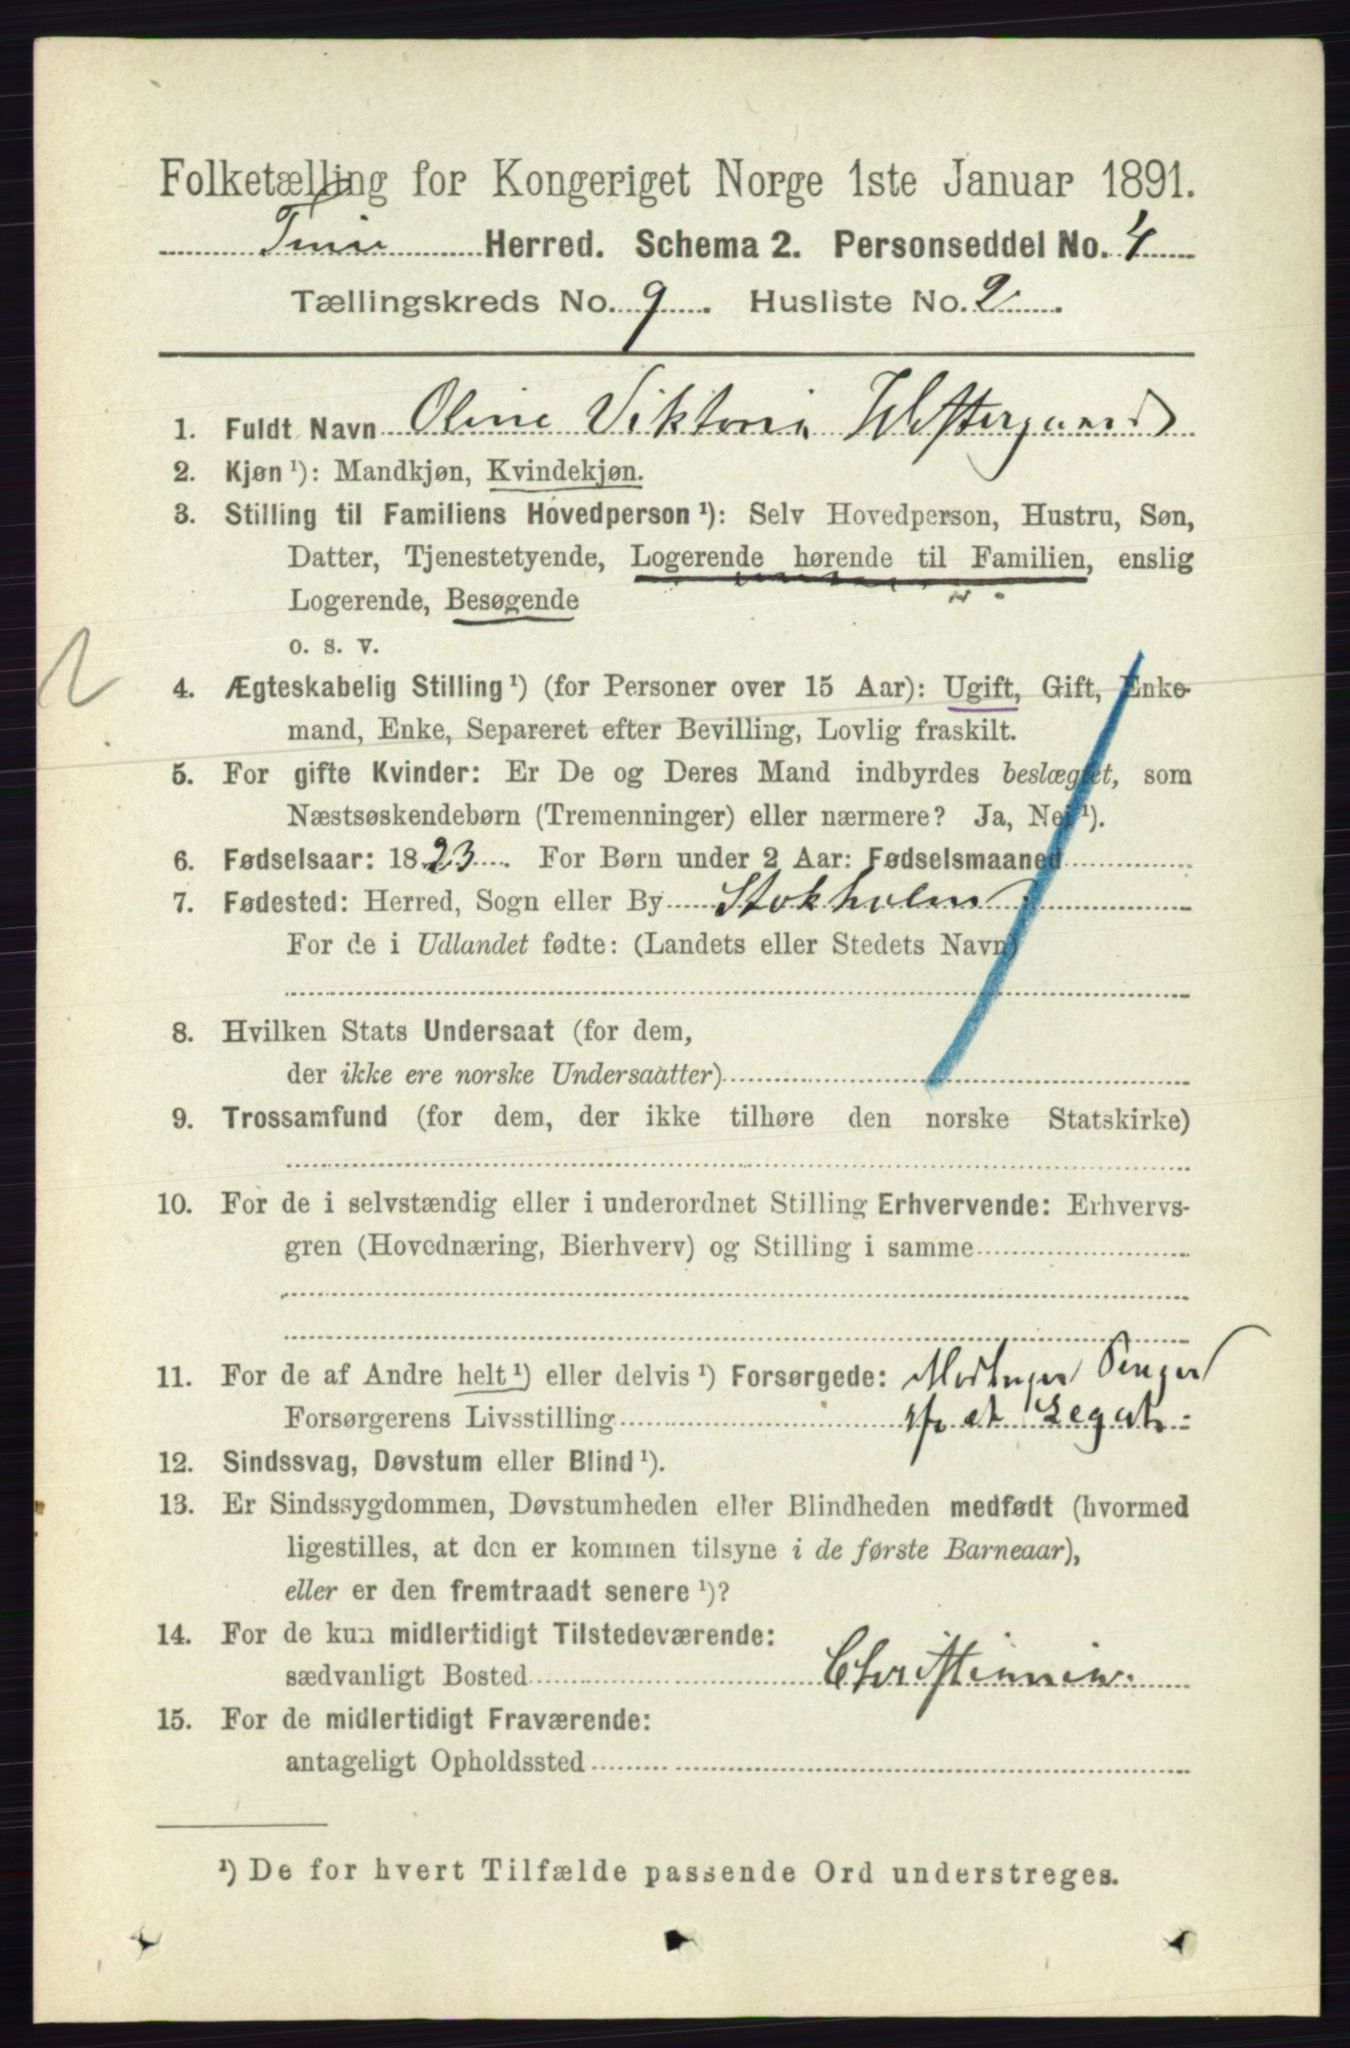 Folketælling for Kongeriget Norge 1ste Januar 1891.
Herred. Schema 2. Personseddel No. 4
Tællingskreds No. 9. Husliste No. 2.
1. Fuldt Navn Oline Viktoria Westergaard
2. Kjøn ¹): Mandkjøn, Kvindekjøn.
3. Stilling til Familiens Hovedperson ¹): Selv Hovedperson, Hustru, Søn,
Datter, Tjenestetyende, Logerende hørende til Familien, enslig
Logerende, Besøgende
o. s. v.
2
4. Ægteskabelig Stilling ¹) (for Personer over 15 Aar): Ugift, Gift, Enke-
mand, Enke, Separeret efter Bevilling, Lovlig fraskilt.
5. For gifte Kvinder: Er De og Deres Mand indbyrdes beslægtet, som
Næstsøskendebørn (Tremenninger) eller nærmere? Ja, Nei ¹).
6. Fødselsaar: 1823. For Børn under 2 Aar: Fødselsmaaned
7. Fødested: Herred, Sogn eller By Stokholm.
For de i Udlandet fødte: (Landets eller Stedets Navn)
8. Hvilken Stats Undersaat (for dem,
der ikke ere norske Undersaatter)
9. Trossamfund (for dem, der ikke tilhøre den norske Statskirke)
10. For de i selvstændig eller i underordnet Stilling Erhvervende: Erhvervs-
gren (Hovednæring, Bierhverv) og Stilling i samme
11. For de af Andre helt ¹) eller delvis ¹) Forsørgede: Modtager Penger
Forsørgerens Livsstilling af et Legat.
12. Sindssvag, Døvstum eller Blind ¹).
13. Er Sindssygdommen, Døvstumheden eller Blindheden medfødt (hvormed
ligestilles, at den er kommen tilsyne i de første Barneaar),
eller er den fremtraadt senere ¹)?
14. For de kun midlertidigt Tilstedeværende:
sædvanligt Bosted Christiania.
15. For de midlertidigt Fraværende:
antageligt Opholdssted
¹) De for hvert Tilfælde passende Ord understreges.